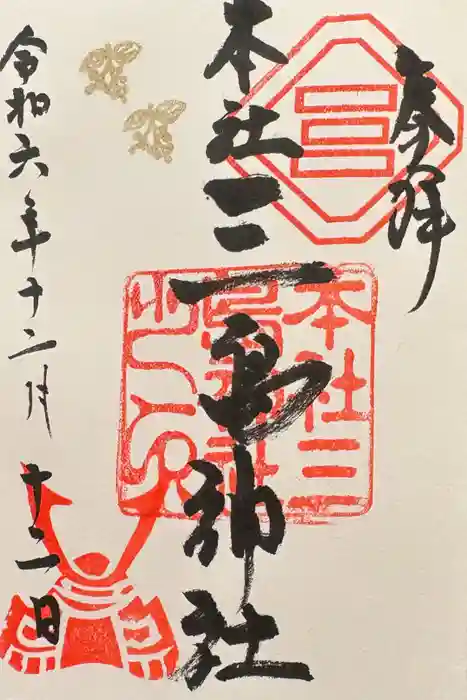 奉拝
本社三島神社
令和六年十二月十二日
本社三
島神社
之印